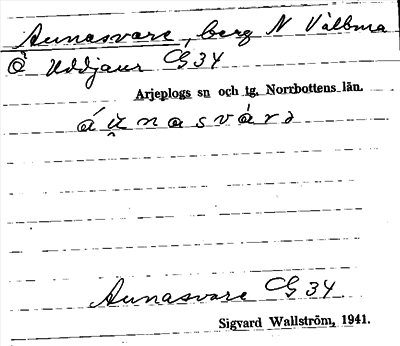 Aunasvare, berg N Välbma
Ö Uddjaur G34
Arjeplogs sn och tg. Norrbottens län.
áu̯nasvárɔ
Aunasvare G34
Sigvard Wallström, 1941.